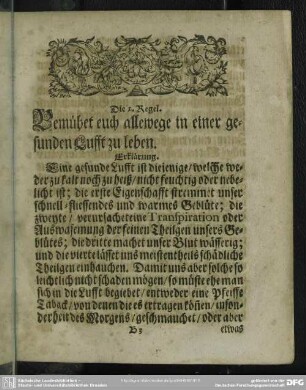 Die 1. Regel.
Bemühet euch allewege in einer ge-
sunden Lufft zu leben.
Erklärung.
Eine gesunde Lufft ist diejenige/ welche we-
der zu kalt noch zu heiß/ nicht feuchtig oder nebe-
licht ist; die erste Eigenschafft stremmet unser
schnell-fliessendes und warmes Geblüte; die
zweyte / verursachet eine Transpiration oder
Auswasemung der feinen Theilgen unsers Ge-
blütes; die dritte machet unser Blut wässerig;
und die vierte lässet uns meistentheils schädliche
Theilgen einhauchen. Damit uns aber solche so
leichtlich nicht schaden mögen/ so müste ehe man
sich in die Lufft begiebet/ entweder eine Pfeiffe
Taback/ von denen die es ertragen köñen/ inson-
derheit des Morgens/ geschmauchet/ oder aber
B 3 etwas